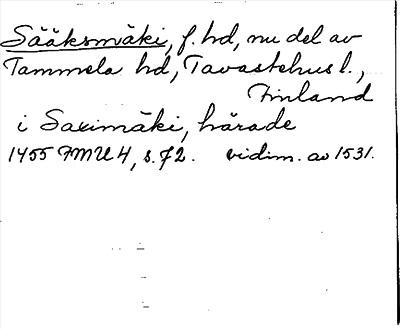 Sääksmäki, f. hd, nu del av
Tammela hd, Tavastehus l.,
Finland
i Saximäki, härade
1455 FMU 4, s. 72. vidim. av 1531.